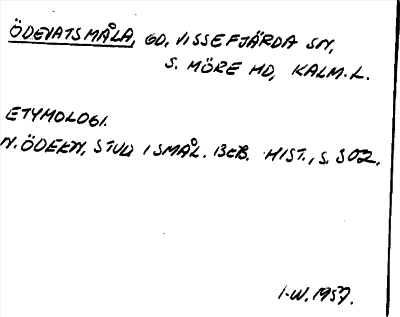 ÖDEVATSMÅLA, GD, VISSEFJÄRDA SN,
S. MÖRE HD, KALM. L.
ETYMOLOGI.
N. ÖDEEN, STUD I SMÅL. BEB. HIST., S. 302.
I-W. 1957.